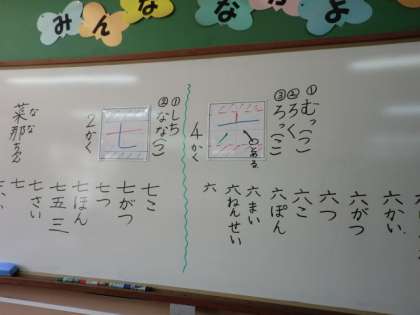 みんな なかよ
①むっ(つ)
②ろく
③ろっ(こ)
六
4かく
六かい
六がつ
六つ
六こ
六ぽん
六まい
六ねんせい
六
①しち
②なな(つ)
七
2かく
なな
菜那ちゃん
七こ
七がつ
七つ
七ほん
七五三
七さい
七